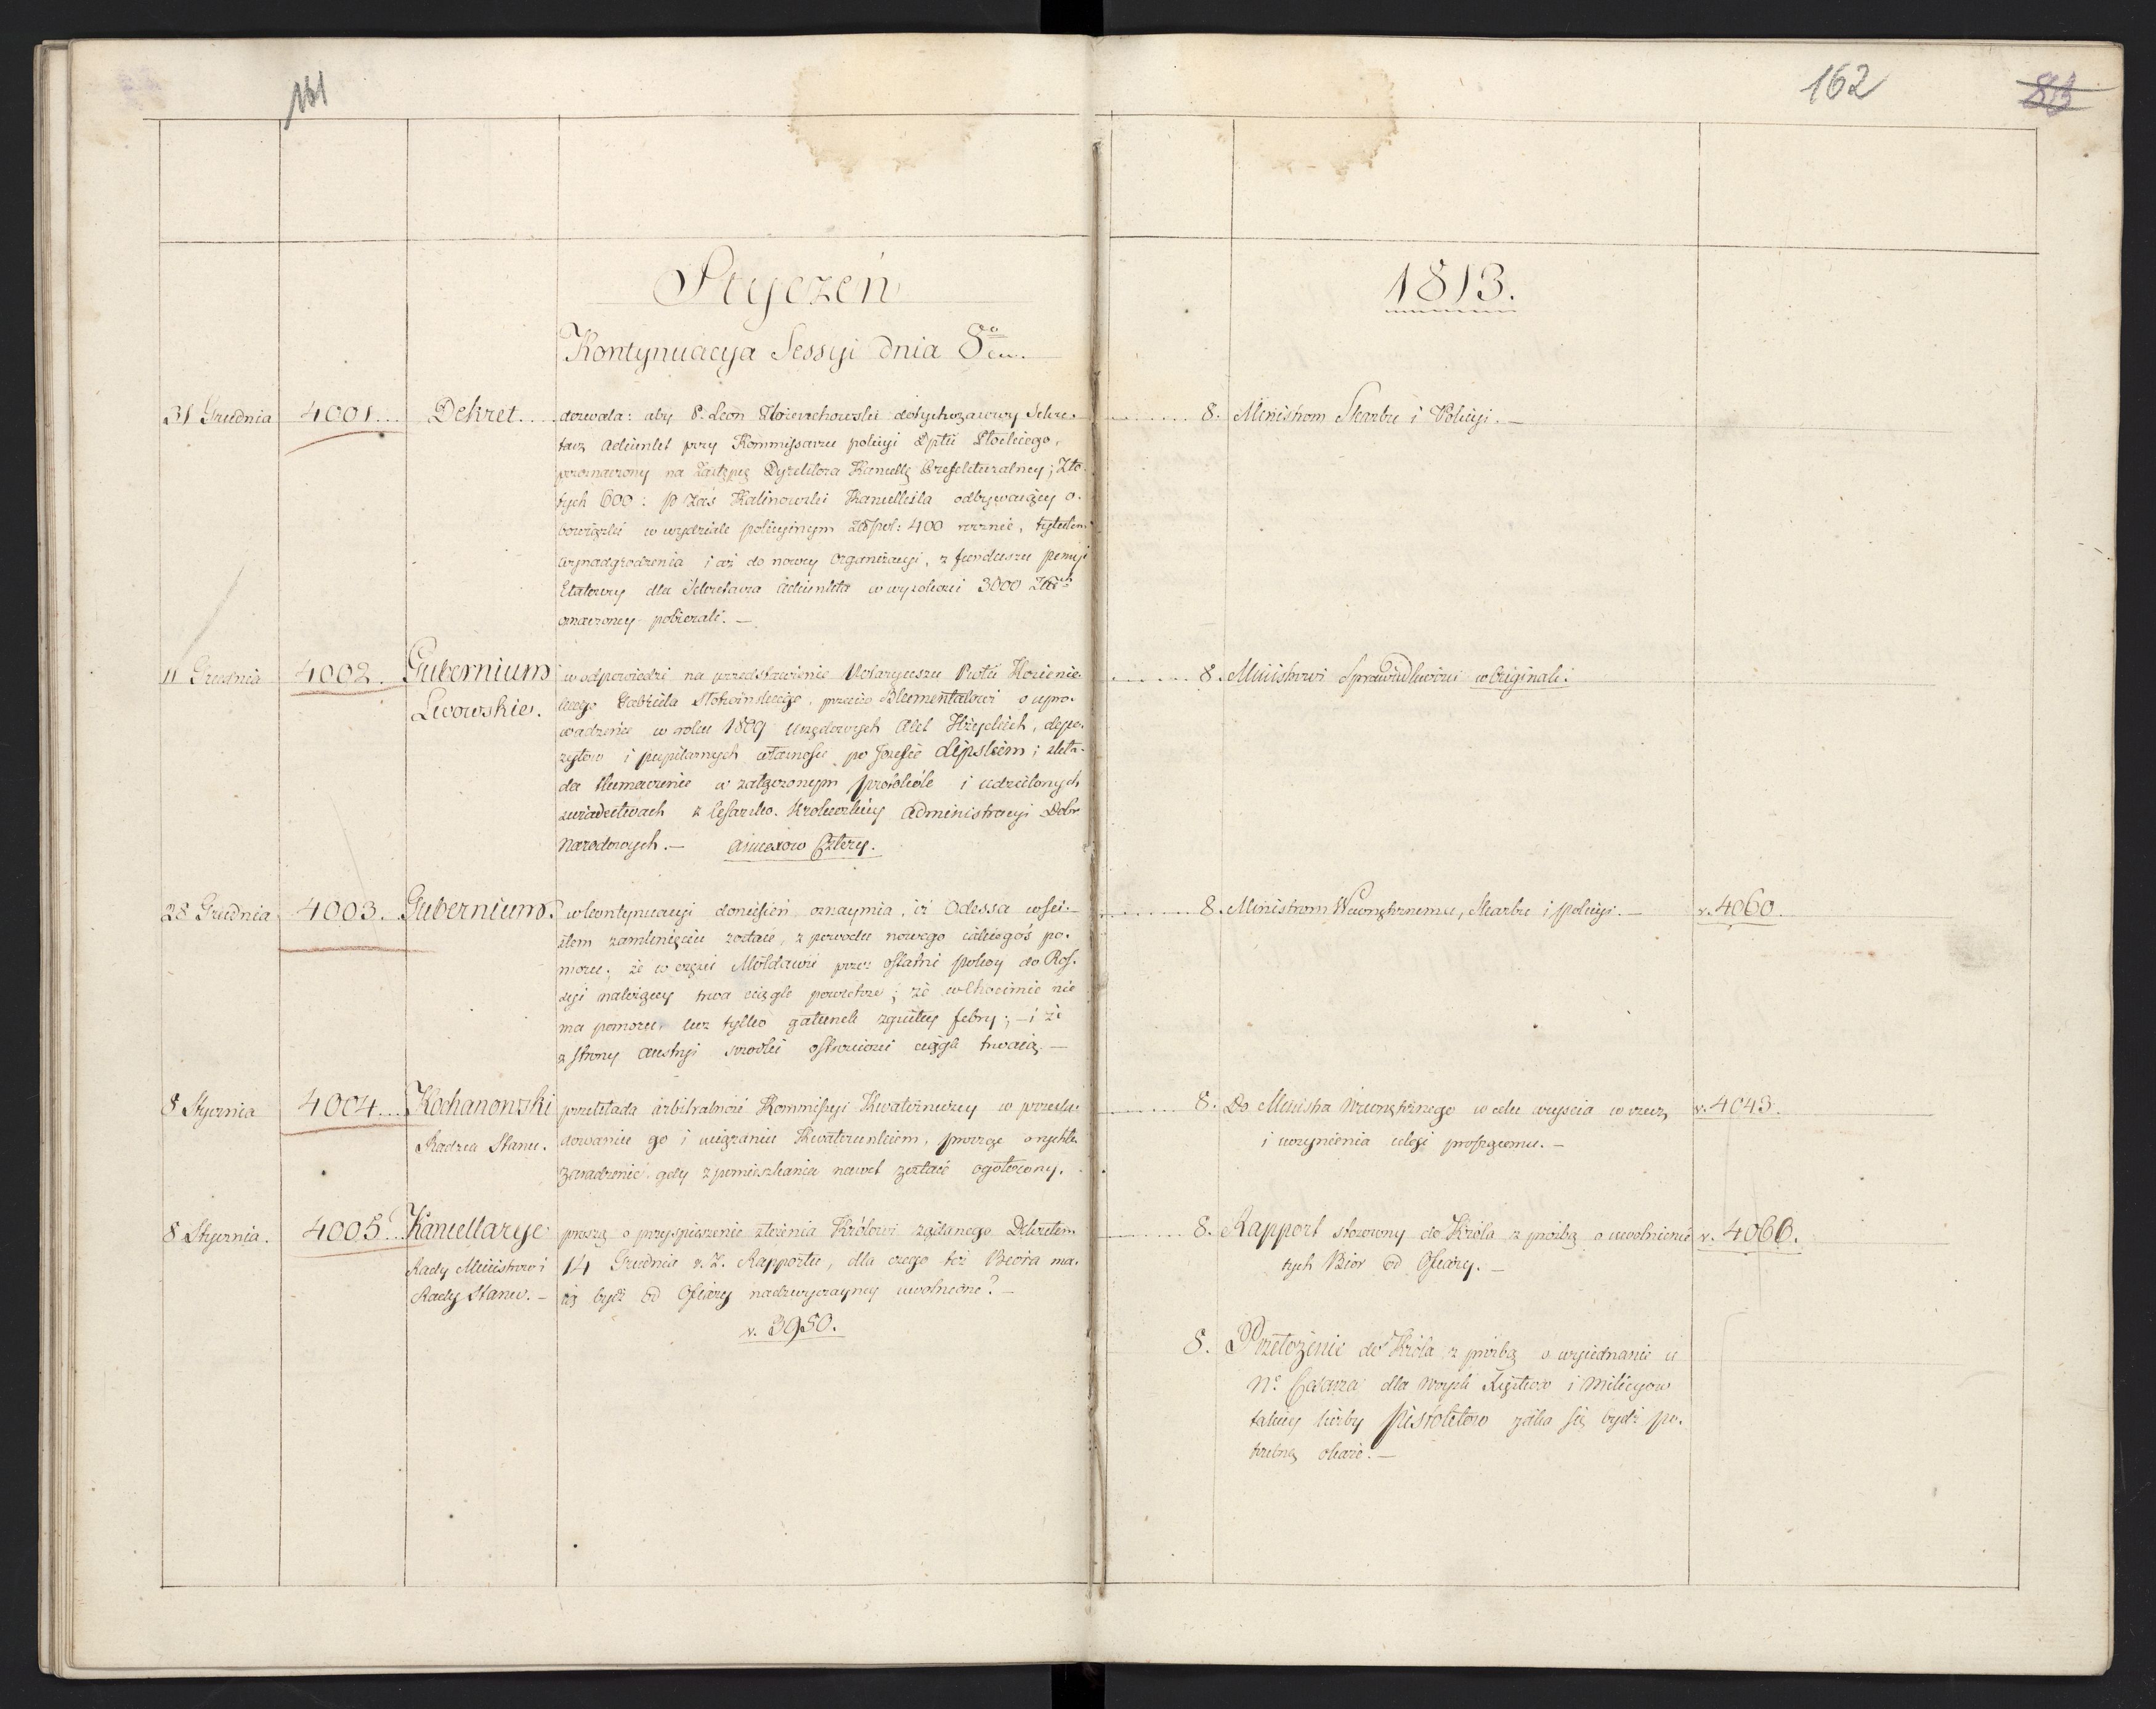 161
162
Styczeń
1813.
Kontynuacya Sessyi dnia 8
31 Grudnia 4001. Dekret. dozwala: aby P. Leon dotychczasowy Sekre-
tarz Adiunkt przy Kommissarzu policyi Dpttu Płockiego,
przeznaczony na Zastępcę Dyrektora Kancellg Prefekturalney; Zło-
tych 600: P. zaś Kalinowski Kancellista odbywaiący o-
bowiązki w wydziale policyinym Złłpol: 400 rocznie, tytułem
wynadgrodzenia i aż do nowey Organizacyi, z funduszu pensyi
Etatowey dla Sekretarza Adiunkta w wysokości 3000 Złł
oznaczoney pobierali. —
8. Ministrom Skarbu i Policyi. —
11 Grudnia 4002. Gubernium
Lwowskie.
w odpowiedzi na przedstawienie Notaryusza Pwttu Kozienic-
kiego Gabryela przeciw Blumentalowi o upro-
wadzenie w roku 1809 urzędowych Akt depo-
zytów i pupilarnych własność po Józefie Lipskim; skła-
da tłumaczenie w załączonym protokóle i udzielonych
świadectwach z Cesarsko. Krolewskiey Administracyi Dobr
Narodowych. — Annexow Cztery.
8. Ministrowi Sprawiedliwości w Originali.
28 Grudnia 4003. Gubernium. w kontynuacyi doniesień oznaymia, iż Odessa w ści-
słem zamknięciu zostaie, z powodu nowego iakiegoś po-
moru; że w części Moldawii przez ostatni pokoy do Ros-
syi należącey trwa ciągle powietrze; że w Chocimie nie
ma pomoru, lecz tylko gatunek zgniłey febry; — i że
z strony Austryi środki ostrożności ciągle trwaią. —
8. Ministrom Wewnętrznemu, Skarbu i policyi. — v. 4060.
8 Stycznia 4004. Kochanowski
Radzca Stanu.
przekłada arbitralność Kommissyi Kwaterniczey w prześla-
dowaniu go i uciążaniu Kwaterunkiem, prosząc o rychłe
zaradzenie gdy z pomieszkania nawet zostaie ogołocony.
8. Do Ministra Wewnętrznego w celu weyscia w rzecz, v. 4043.
i uczynienia ulgi proszącemu. —
8 Stycznia. 4005. Kancellarye
Rady Ministrow i
Rady Stanu. —
proszą o przyspieszenie złożenia Królowi żądanego Dekretem
14 Grudnia r. z. Rapportu, dla czego też Biora ma-
ią bydź od Ofiary nadzwyczayney uwolnione? —
v. 3950.
8. Rapport stosowny do Króla z proźbą o uwolnienie v. 4066.
tych Biór od Ofiary. —
8. Przełożenie do Króla z proźbą o wyiednanie u
No Cesarza dla Woysk i Milicyow
takiey liczby Pistoletow iaka się bydź po-
trzebną okaże. —